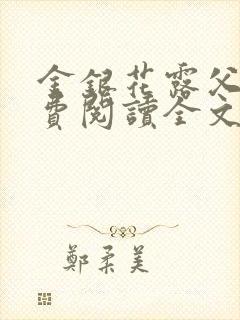 金銀花露父
費閱讀全文
鄭柔美